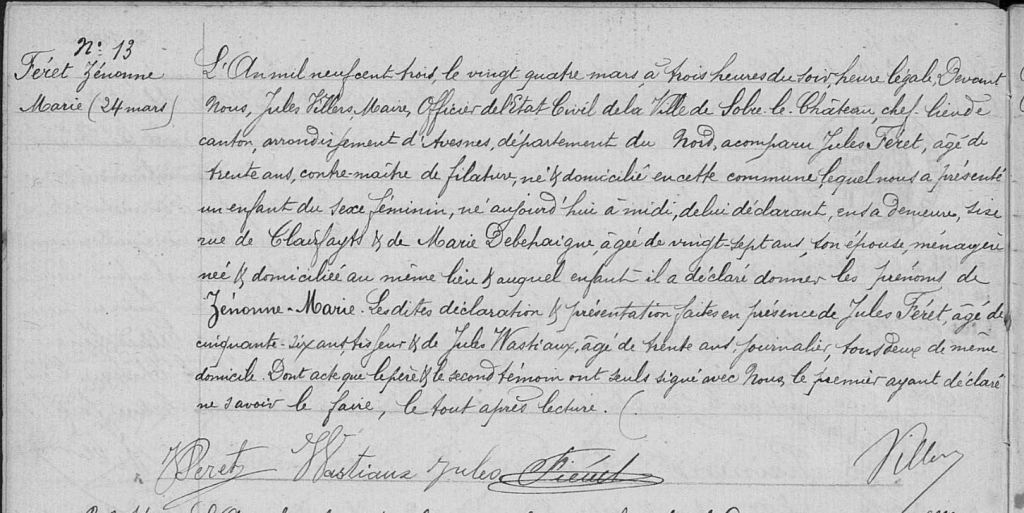 N° 13
Féret Zénonne
Marie (24 mars)
L'An mil neuf cent trois, le vingt quatre mars, à trois heures du soir, heure légale, Devant
Nous, Jules Villers, Maire, Officier de l'Etat Civil de la Ville de Solre-le-Château, chef-lieu de
canton, arrondissement d'Avesnes, département du Nord, a comparu Jules Féret, âgé de
trente ans, contre-maître de filature, né & domicilié en cette commune, lequel nous a présenté
un enfant du sexe féminin, né aujourd'hui à midi, de lui déclarant, en sa demeure, sise
rue de Clairfayts & de Marie Debehaigne, âgée de vingt-sept ans, son épouse, ménagère
née & domiciliée au même lieu & auquel enfant il a déclaré donner les prénoms de
Zénonne-Marie. Les dites déclaration & présentation faites en présence de Jules Féret, âgé de
cinquante-six ans, tisseur & de Jules Wastiaux, âgé de trente ans, journalier, tous deux de même
domicile. Dont acte que le père & le second témoin ont seuls signé avec Nous, le premier ayant déclaré
ne savoir le faire, le tout après lecture.
Wastiaux Jules
Villers